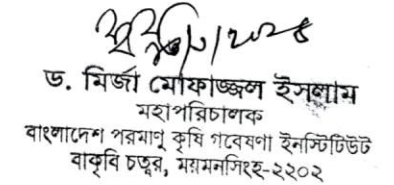 ড. মির্জা মোফাজ্জল ইসলাম
মহাপরিচালক
বাংলাদেশ পরমাণু কৃষি গবেষণা ইনস্টিটিউট
বাকৃবি চত্বর, ময়মনসিংহ-২২০২